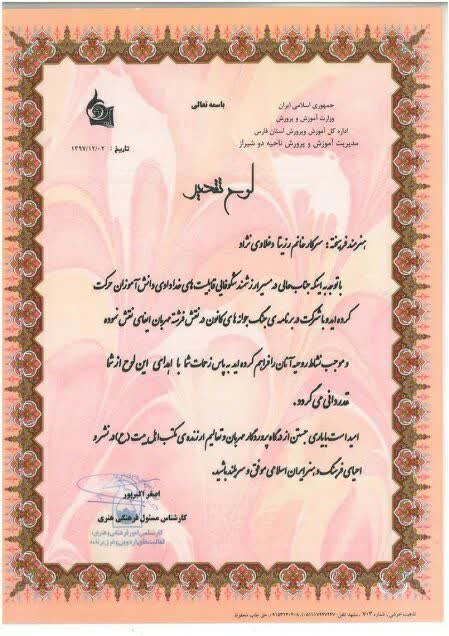 باسمه تعالی
جمهوری اسلامی ایران
وزارت آموزش و پرورش
اداره کل آموزش وپرورش استان فارس
مدیریت آموزش و پرورش ناحیه دو شیراز
تاریخ : ۱۳۹۷/۱۲/۰۲
لوح تقدیر
هنرمند فرهیخته : سرکار خانم رزیتا دغلاوی نژاد
با توجه به اینکه جناب عالی در مسیر ارزشمند شکوفایی قابلیت های خدادادی دانش آموزان حرکت
کرده اید و با شرکت در برنامه ی جنگ جوانه های کانون در نقش فرشته مهربان ایفای نقش نموده
و موجب نشاط روحیه آنان را فراهم کرده اید به پاس زحمات شما با اهدای این لوح از شما
قدردانی می گردد.
امید است با یاری جستن از درگاه پروردگار مهربان و تعالیم ارزنده ی مکتب اهل بیت (ع) در نشر و
احیای فرهنگ و هنر ایران اسلامی موفق و سربلند باشید.
اصغر اکبرپور
کارشناس مسئول فرهنگی هنری
کارشناسی امور فرهنگی و هنری
فعالیت‌های اردویی و فوق برنامه
تذهیب خرشی ، شماره ۷۰۳ ، مشهد تلفن: ، حق چاپ محفوظ